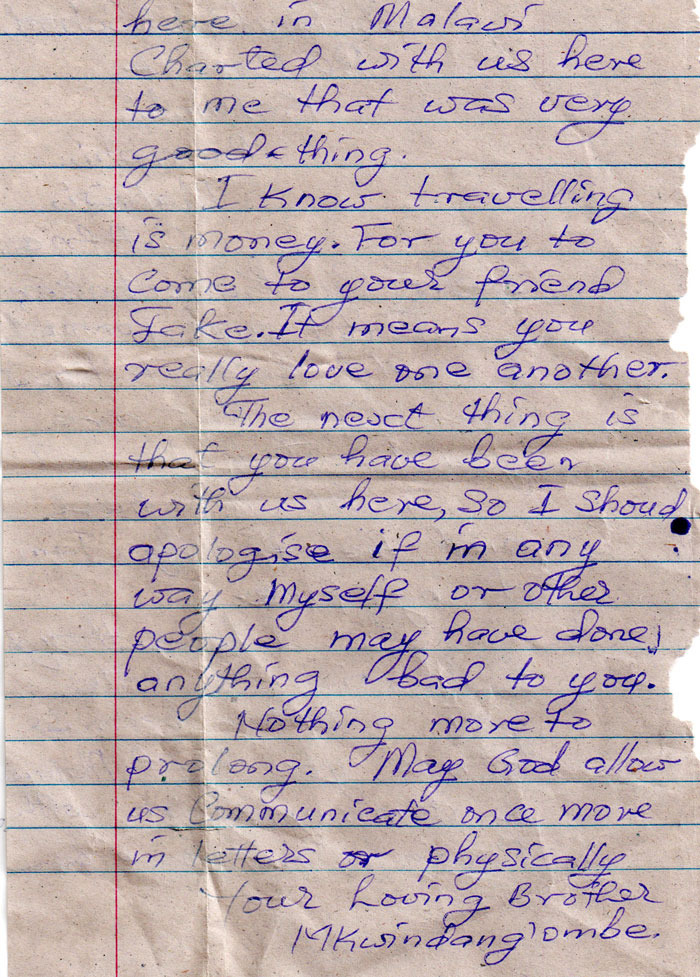 here in Malawi
Charted with us here
to me that was very
good thing.
I know travelling
is money. For you to
come to your friend
Jake. It means you
really love one another.
The next thing is
that you have been
with us here, so I shoud
apologise if in any
way Myself or other
people may have done
anything bad to you.
Nothing more to
prolong. May God allow
us Communicate once more
in letters or physically
Your Loving Brother
MKwindang'ombe.